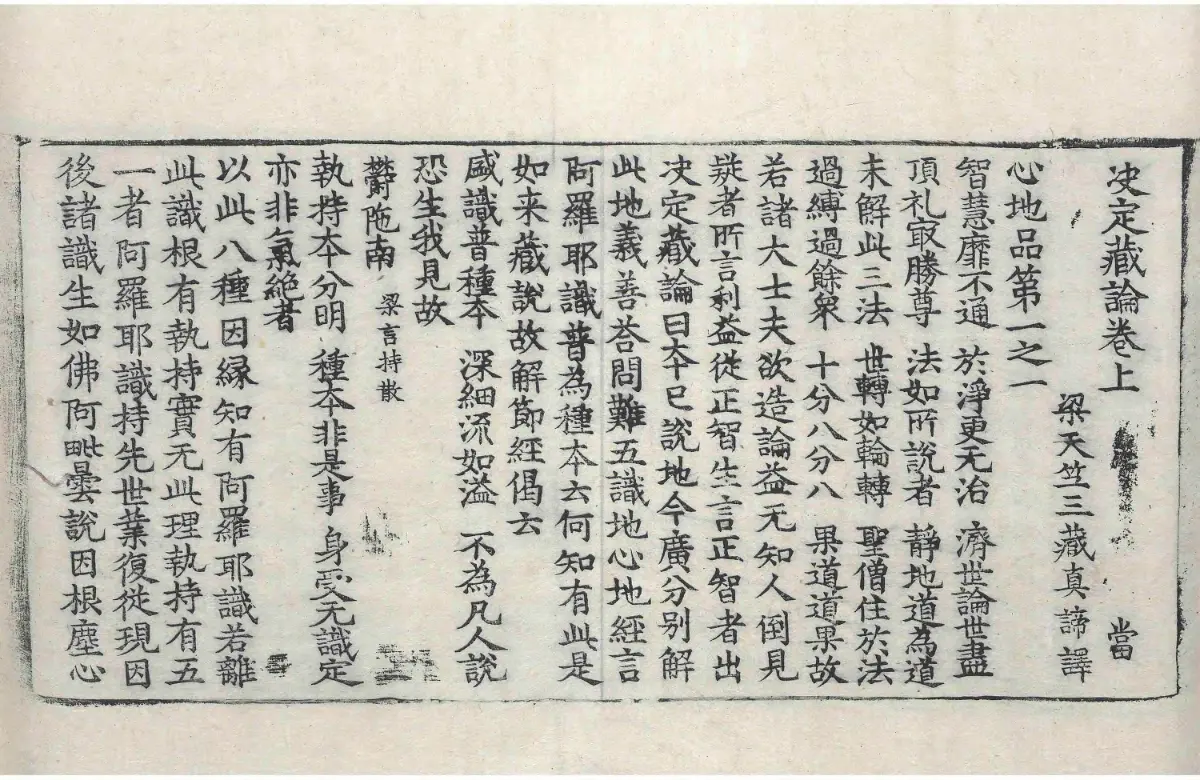 决定藏論卷上 當
梁天竺三藏真諦譯
心地品第一之一
智慧靡不通 於淨更无治 濟世論世盡
頂礼㝡勝尊 法如所說者 靜地道為道
未解此三法 世轉如輪轉 聖僧住於法
過縛過餘衆 十分八分八 果道道果故
若諸大士夫欲造論益无知人倒見
疑者所言利益從正智生言正智者出
决定藏論曰本已說地今廣分別解
此地義善荅問難五識地心地經言
阿羅耶識普為種本云何知有此是
如来藏說故解節經偈云
盛識普種本 深細流如溢 不為凡人說
恐生我見故
欝陁南 梁言持散
執持本分明 種本非是事 身受无識定
亦非氣絶者
以此八種因縁知有阿羅耶識若離
此識根有執持實无此理執持有五
一者阿羅耶識持先世業復從現因
後諸識生如佛阿毗曇說因根塵心